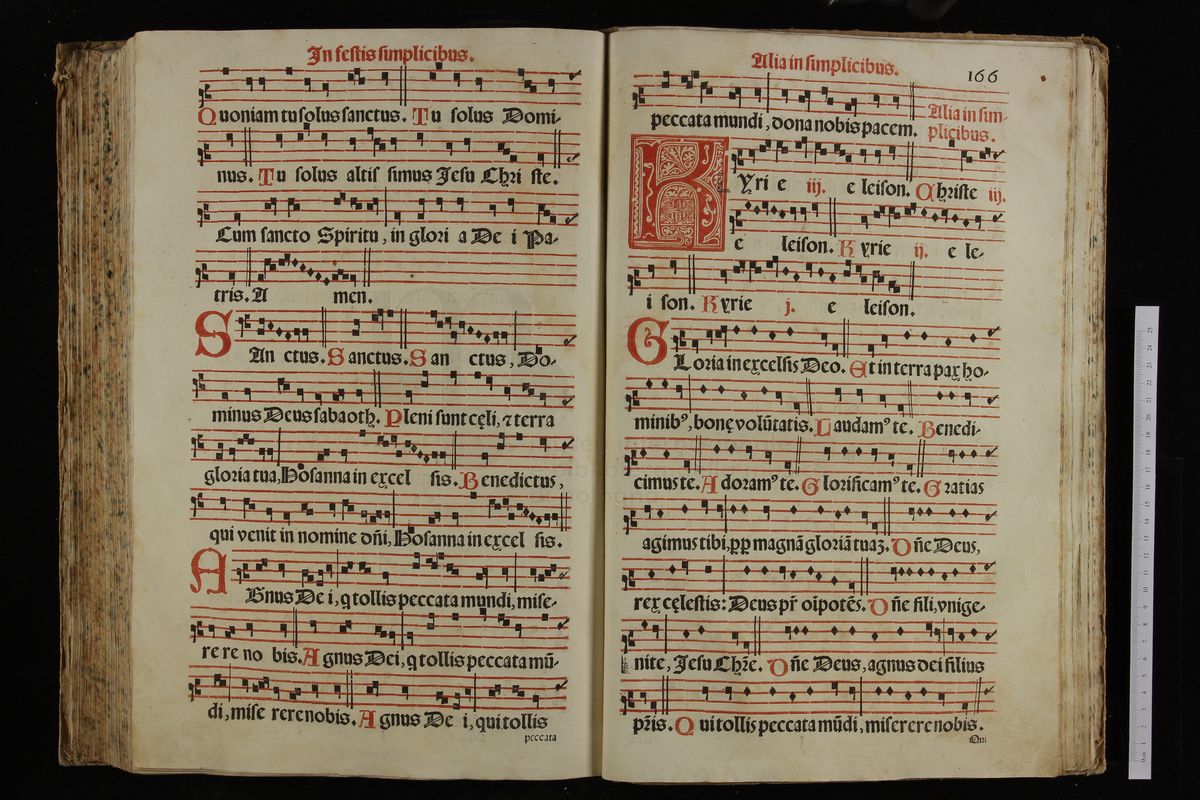 In festis simplicibus.
Quoniam tu solus sanctus. Tu solus Domi-
nus. Tu solus altis simus Jesu Chri ste.
Cum sancto Spiritu, in glori a De i Pa-
tris. A men.
SAn ctus. Sanctus. San ctus, Do-
minus Deus sabaoth. Pleni sunt cęli, ⁊ terra
gloria tua, Hosanna in excel sis. Benedictus,
qui venit in nomine dñi, Hosanna in excel sis.
AGnus De i, q tollis peccata mundi, mise-
re re no bis. Agnus Dei, q tollis peccata mũ-
di, mise rere nobis. Agnus De i, qui tollis
peccata
Alia in simplicibus.
166
peccata mundi, dona nobis pacem.
Alia in sim-
plicibus.
KYri e iij. e leison. Christe iij.
e leison. Kyrie ij. e le-
i son. Kyrie j. e leison.
GLoria in excelsis Deo. Et in terra pax ho-
minibꝰ, bonę volũtatis. Laudamꝰ te. Benedi-
cimus te. Adoramꝰ te. Glorificamꝰ te. Gratias
agimus tibi, pp magnã gloriã tuaȝ. Dñe Deus,
rex cęlestis: Deus pr̃ oĩpotẽs. Dñe fili, vnige-
nite, Jesu Chr̃e. Dñe Deus, agnus dei filius
pr̃is. Qui tollis peccata mũdi, miserere nobis.
Qui